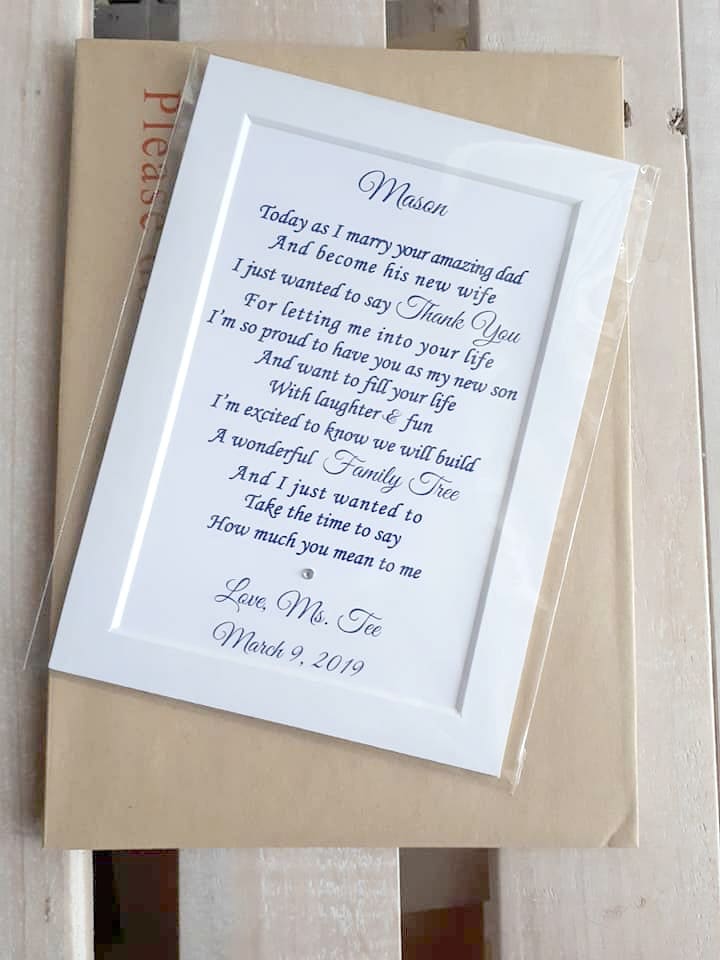 Please
Mason
Today as I marry your amazing dad
And become his new wife
I just wanted to say Thank You
For letting me into your life
I'm so proud to have you as my new son
And want to fill your life
With laughter & fun
I'm excited to know we will build
A wonderful Family Tree
And I just wanted to
Take the time to say
How much you mean to me
Love, Ms. Tee
March 9, 2019